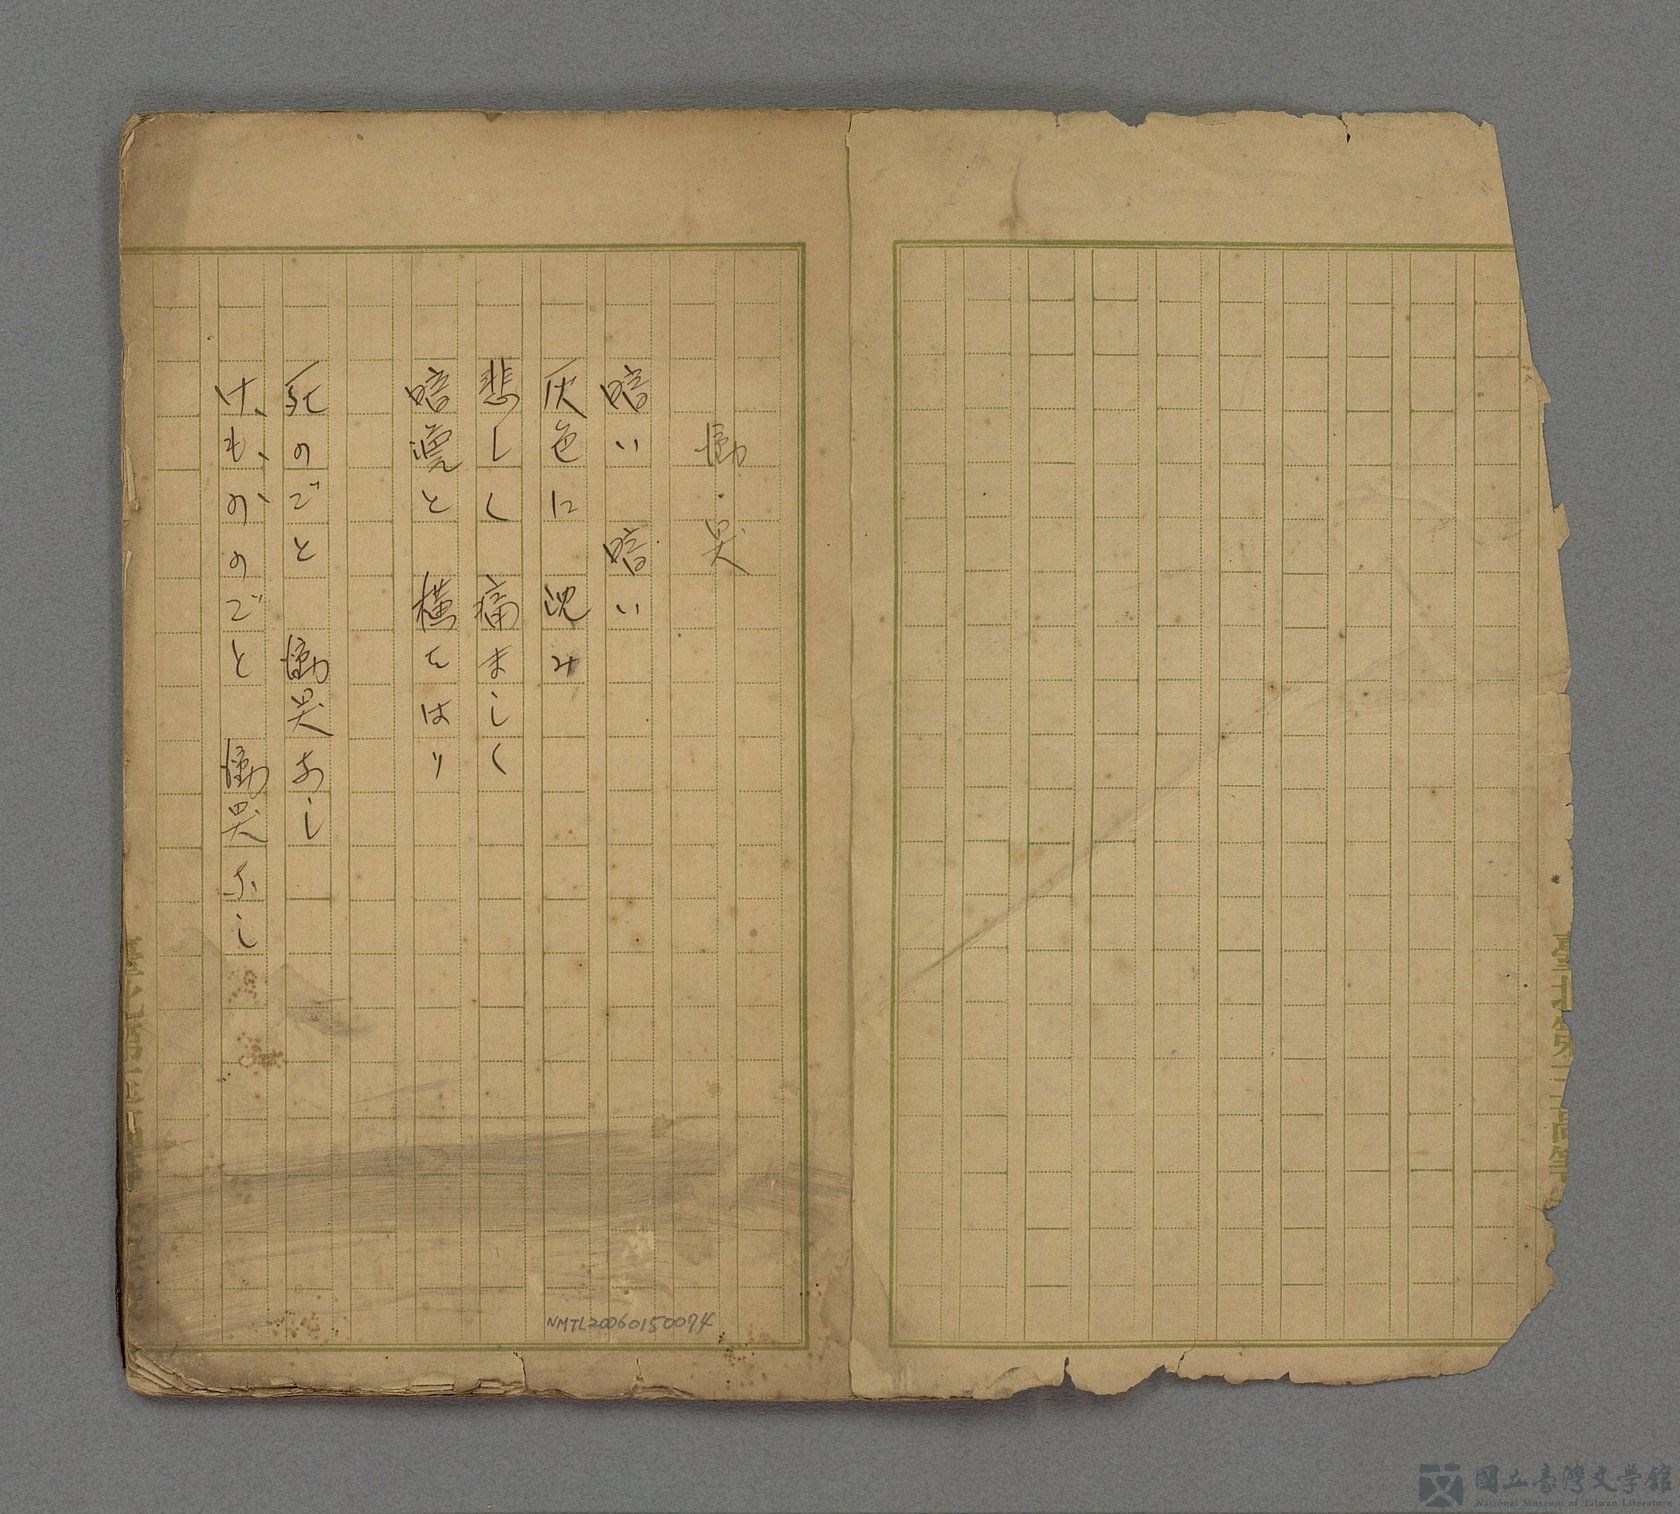 慟哭
暗い 暗い
灰色に 沈み
悲しく 痛ましく
暗澹と 横たはり
死のごと 慟哭なし
けもののごと 慟哭なし
NMTL20060150094
臺北第三高等
國立臺灣文學館
National Museum of Taiwan Literature